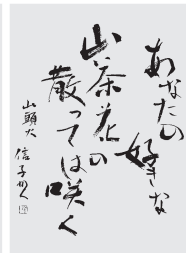 あなたの好きな
山茶花の
散っては咲く
山頭火 信子かく